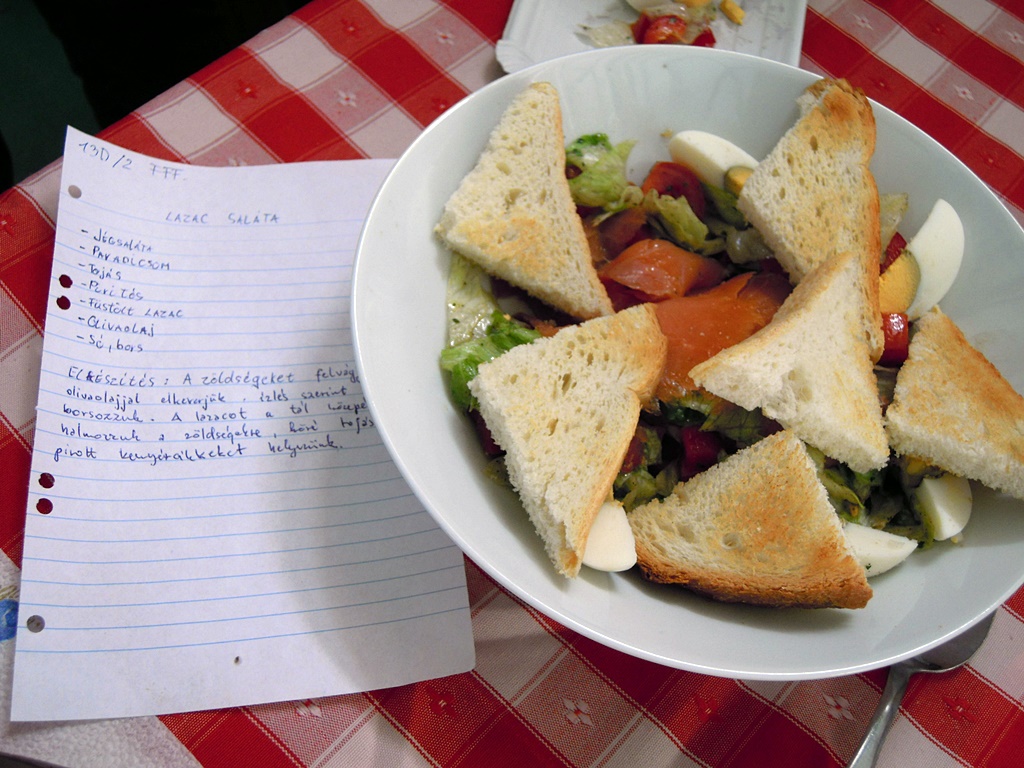 13D/2 FFF.
LAZAC SALÁTA
- JÉGSALÁTA
- PARADICSOM
- Tojás
- Pirítós
- FÜSTÖLT LAZAC
- OLIVAOLAJ
- Só, bors
ELKÉSZÍTÉS: A zöldségeket
olivaolajjal elkeverjük, ízlés szerint
borsozzuk. A lazacot a tál
halmozzuk a zöldségekre, köré tojás
pirott kenyércikkeket helyezünk.